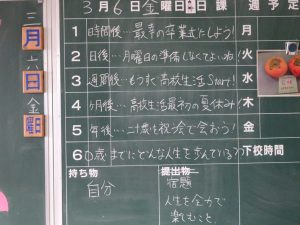 三
月
六
日
金
曜日
3月6日金曜日課
週予定
1 時間後…最幸の卒業式にしよう!
月
2 日後…月曜日の準備しなくてよいね
火
3 週間後…もうすぐ高校生活Start!
水
4 ヶ月後…高校生活最初の夏休み!
木
5 年後…二十歳を祝う会で会おう!
金
60歳までにどんな人生を歩んでいる?
下校時間
持ち物
自分
提出物
宿題
人生を全力で
楽しむこと